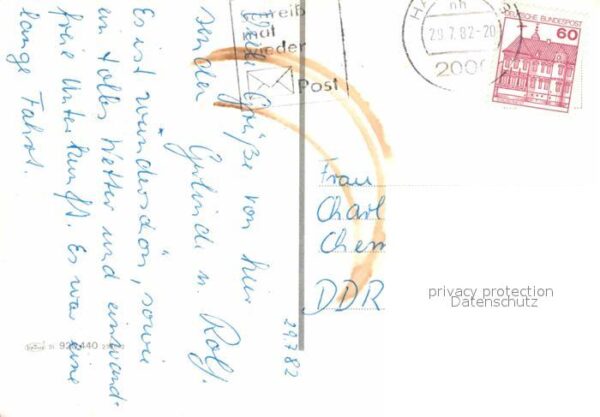 Viele Grüße von hier
senden Gerlinde u. Rolf.
Es ist wunderschön, sowie
ein tolles Wetter und einwand-
freie Unterkunft. Es war eine
lange Fahrt.
29.7.82
Schreib
mal
wieder
Post
29.7.82-20
2000
DEUTSCHE BUNDESPOST
60
Frau
Charl
Chem
DDR
privacy protection
Datenschutz